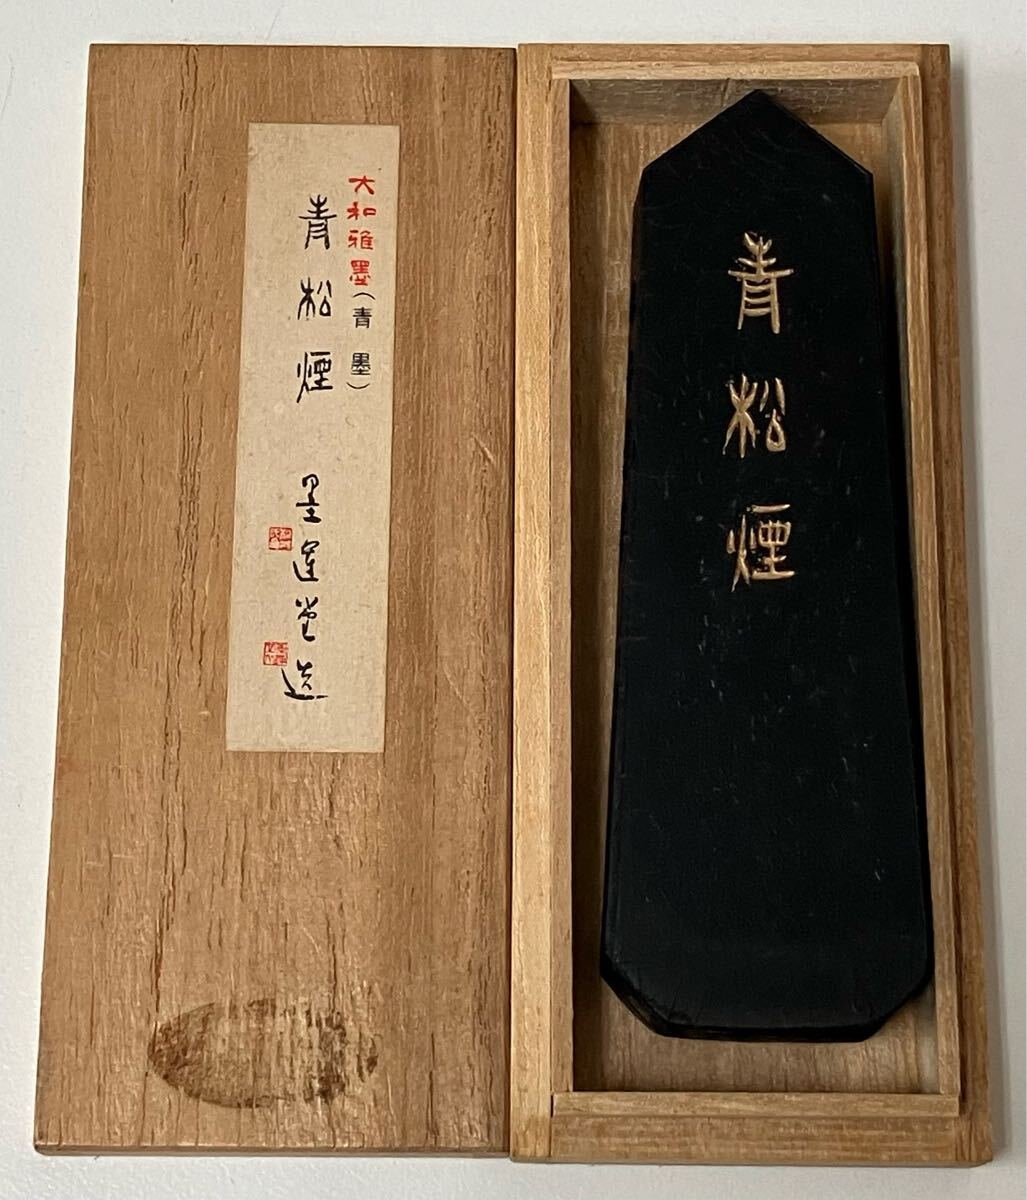 大和雅墨(青墨)
青松煙 墨運堂造
青松煙